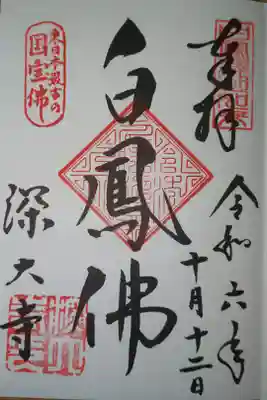 奉拝
令和六年
十月十二日
白鳳佛
深大寺
東日本最古の
国宝佛